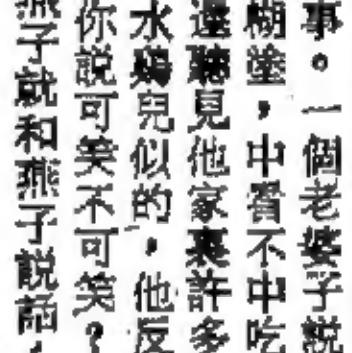 事。一個老婆子説
糊塗，中看不中吃
還聽見他家裏許多
水鷄兒似的，他反
你説可笑不可笑？
燕子就和燕子説話